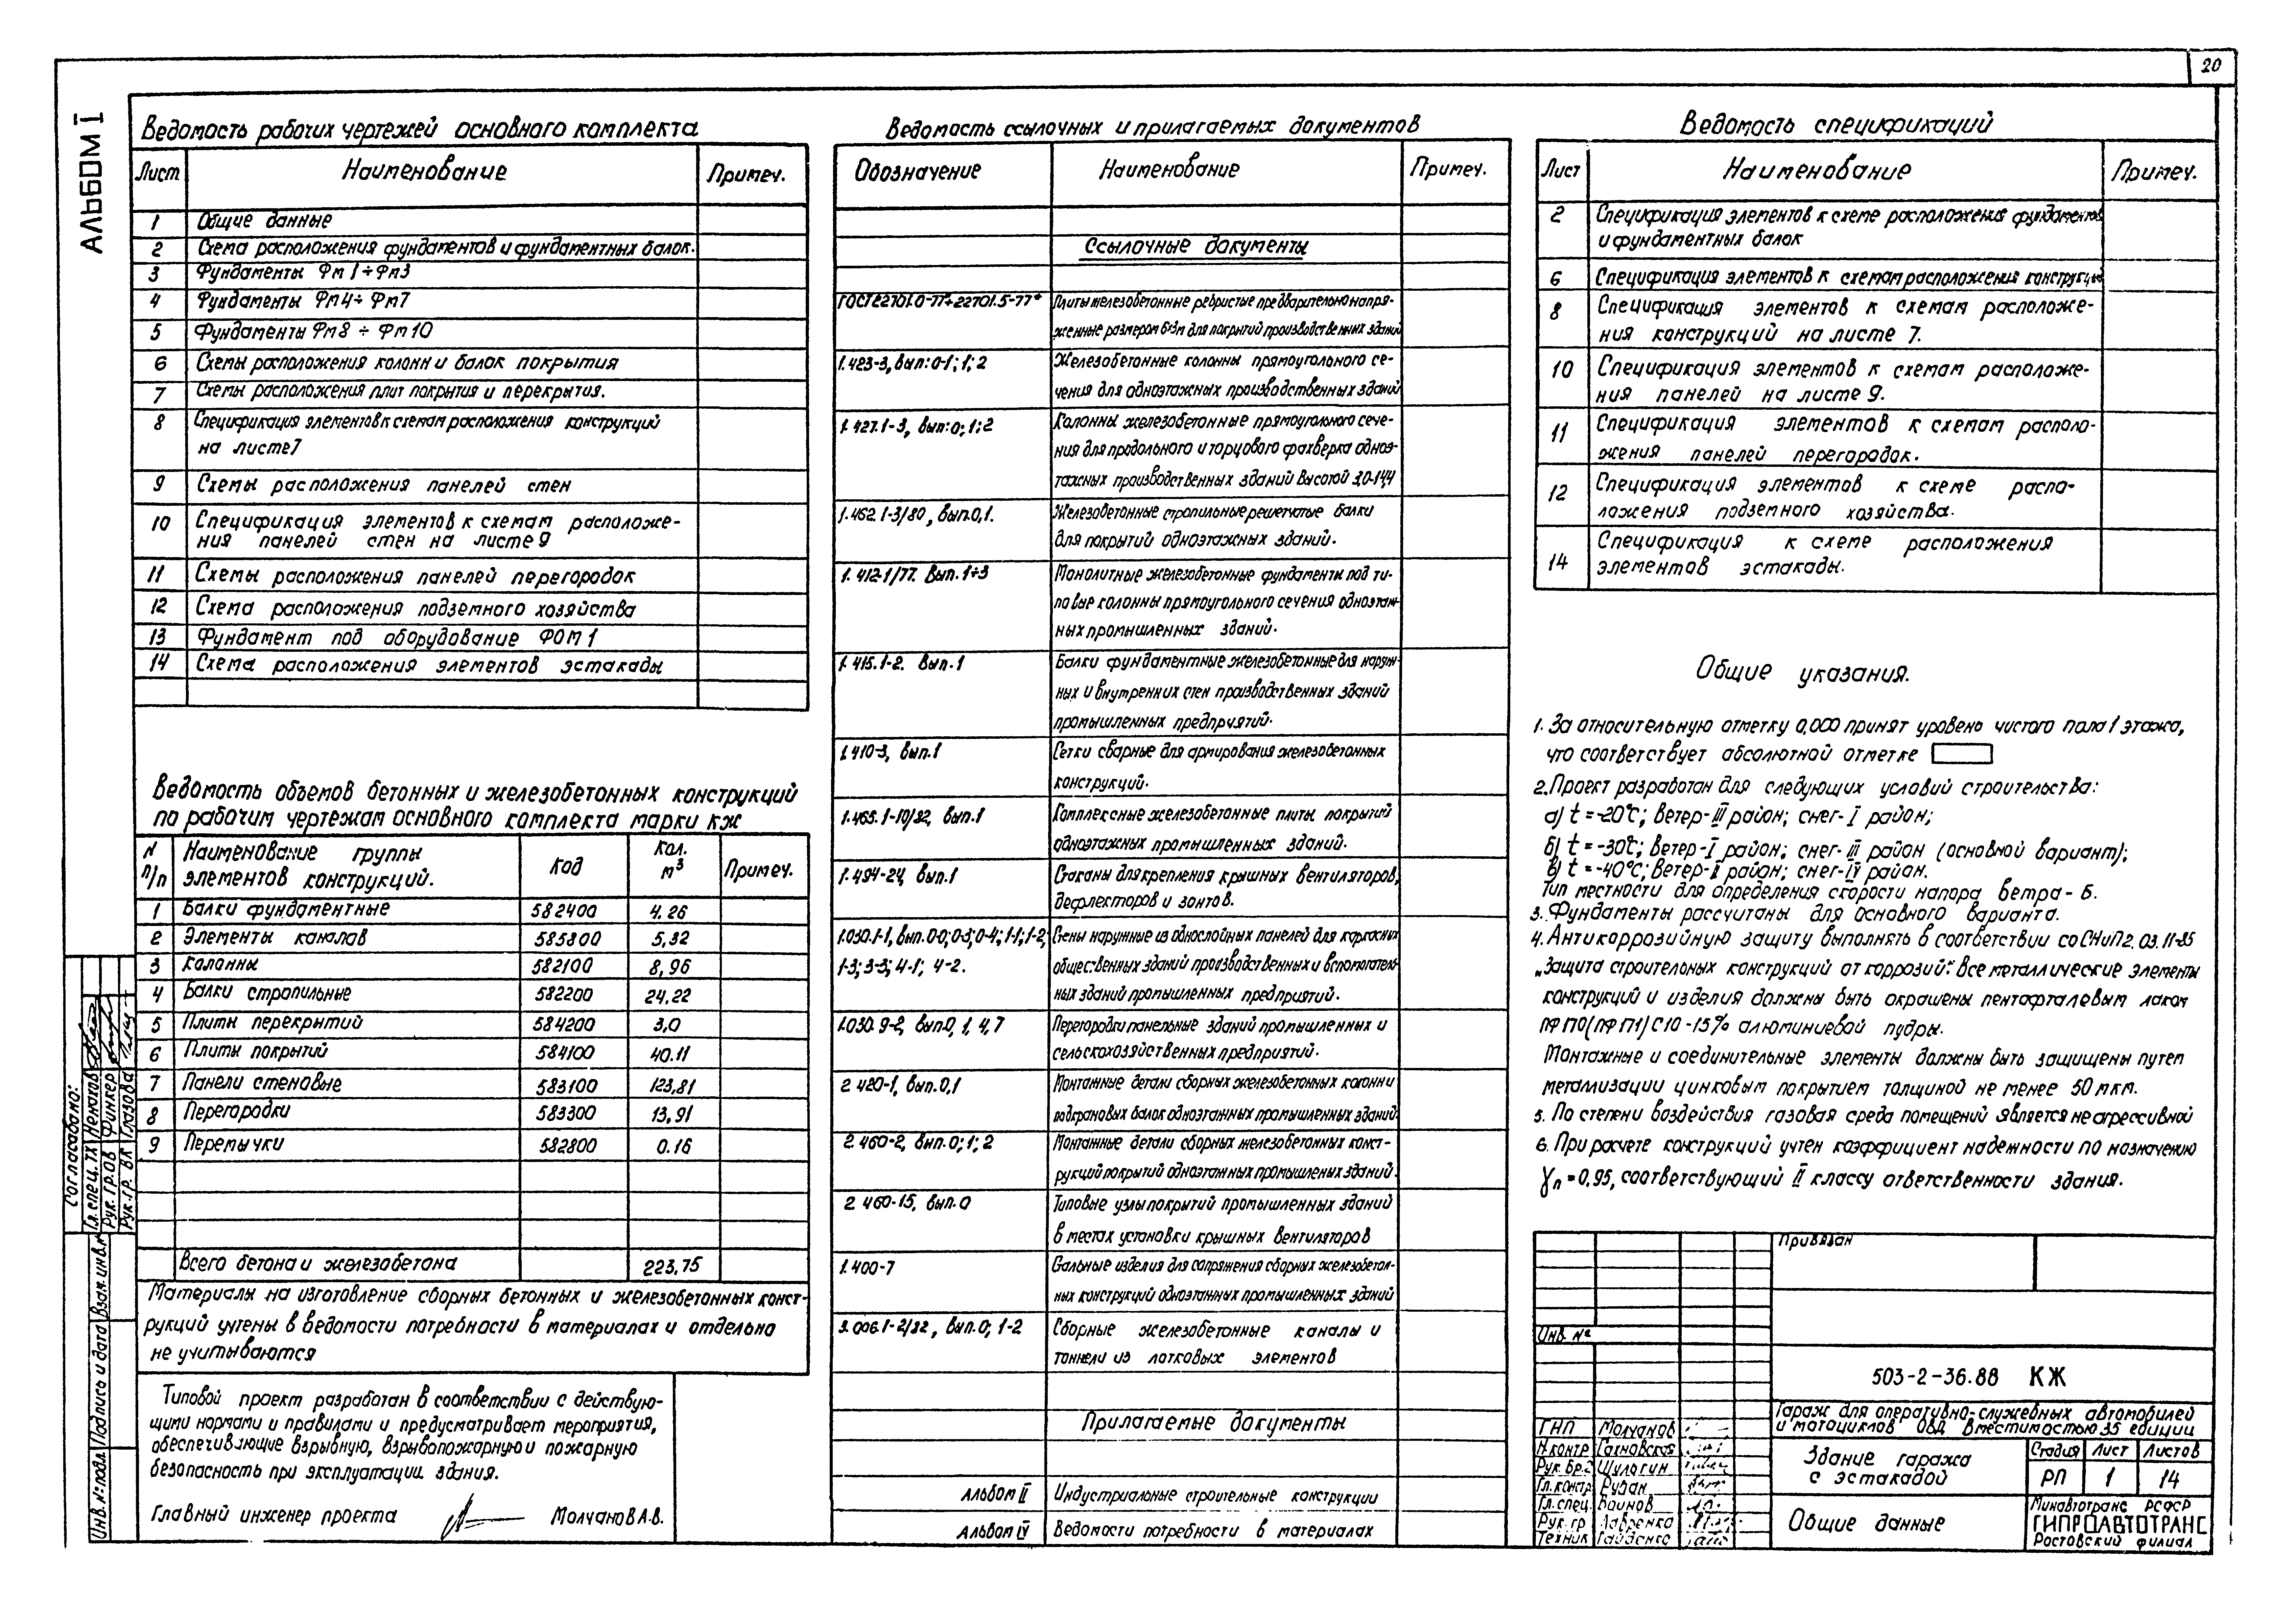 20
Альбом I
Ведомость рабочих чертежей основного комплекта
Лист Наименование Примеч.
1 Общие данные
2 Схема расположения фундаментов и фундаментных балок.
3 Фундаменты Фм 1÷Фм3
4 Фундаменты Фм4÷ Фм7
5 Фундаменты Фм8 ÷ Фм10
6 Схемы расположения колонн и балок покрытия
7 Схемы расположения плит покрытия и перекрытия.
8 Спецификация элементов к схемам расположения конструкций
на листе 7
9 Схемы расположения панелей стен
10 Спецификация элементов к схемам расположе-
ния панелей стен на листе 9
11 Схемы расположения панелей перегородок
12 Схема расположения подземного хозяйства
13 Фундамент под оборудование ФОМ 1
14 Схема расположения элементов эстакады
Ведомость объемов бетонных и железобетонных конструкций
по рабочим чертежам основного комплекта марки КЖ
N п/п Наименование группы элементов конструкций. Код Кол. м³ Примеч.
1 Балки фундаментные 582400 4.26
2 Элементы каналов 585800 5,32
3 Колонны 582100 8,96
4 Балки стропильные 582200 24,22
5 Плиты перекрытий 584200 3,0
6 Плиты покрытий 584100 40.11
7 Панели стеновые 583100 123,81
8 Перегородки 583300 13,91
9 Перемычки 582800 0.16
Всего бетона и железобетона 223,75
Материалы на изготовление сборных бетонных и железобетонных конст-
рукций учтены в ведомости потребности в материалах и отдельно
не учитываются
Типовой проект разработан в соответствии с действую-
щими нормами и правилами и предусматривает мероприятия,
обеспечивающие взрывную, взрывопожарную и пожарную
безопасность при эксплуатации здания.
Главный инженер проекта Молчанов А.В.
Согласовано:
Гл. спец. ТХ Ненахов
Рук. гр. ОВ Финкер
Рук. гр. ВК Глазова
Взам. инв. №
Подпись и дата
Инв. № подл.
Ведомость ссылочных и прилагаемых документов
Обозначение Наименование Примеч.
Ссылочные документы
ГОСТ 22701.0-77÷22701.5-77* Плиты железобетонные ребристые предварительно напря-
женные размером 6×3м для покрытий производственных зданий
1.423-3, вып: 0-1; 1; 2 Железобетонные колонны прямоугольного се-
чения для одноэтажных производственных зданий
1.427.1-3, вып: 0; 1; 2 Колонны железобетонные прямоугольного сече-
ния для продольного и торцового фахверка одноэ-
тажных производственных зданий высотой 3,0-14,4
1.462.1-3/80, вып. 0,1. Железобетонные стропильные решетчатые балки
для покрытий одноэтажных зданий.
1.412-1/77. Вып. 1÷3 Монолитные железобетонные фундаменты под ти-
повые колонны прямоугольного сечения одноэтаж-
ных промышленных зданий.
1.415.1-2. Вып. 1 Балки фундаментные железобетонные для наруж-
ных и внутренних стен производственных зданий
промышленных предприятий.
1.410-3, вып. 1 Сетки сварные для армирования железобетонных
конструкций.
1.465.1-10/82, вып. 1 Комплексные железобетонные плиты покрытий
одноэтажных промышленных зданий.
1.494-24, вып. 1 Стаканы для крепления крышных вентиляторов,
дефлекторов и зонтов.
1.030.1-1, вып. 0-0; 0-3; 0-4; 1-1; 1-2; Стены наружные из однослойных панелей для каркасных
1-3; 3-3; 4-1; 4-2. общественных зданий производственных и вспомогатель-
ных зданий промышленных предприятий.
1.030.9-2, вып. 0, 1, 4, 7 Перегородки панельные зданий промышленных и
сельскохозяйственных предприятий.
2.420-1, вып. 0,1 Монтажные детали сборных железобетонных колонн и
подкрановых балок одноэтажных промышленных зданий.
2.460-2, вып. 0; 1; 2 Монтажные детали сборных железобетонных конст-
рукций покрытий одноэтажных промышленых зданий.
2.460-15, вып. 0 Типовые узлы покрытий промышленных зданий
в местах установки крышных вентиляторов
1.400-7 Стальные изделия для сопряжения сборных железобетон-
ных конструкций одноэтажных промышленных зданий
3.006.1-2/82, вып. 0; 1-2 Сборные железобетонные каналы и
тоннели из лотковых элементов
Прилагаемые документы
Альбом II Индустриальные строительные конструкции
Альбом IV Ведомости потребности в материалах
Ведомость спецификаций
Лист Наименование Примеч.
2 Спецификация элементов к схеме расположения фундаментов
и фундаментных балок
6 Спецификация элементов к схемам расположения конструкций
8 Спецификация элементов к схемам расположе-
ния конструкций на листе 7.
10 Спецификация элементов к схемам расположе-
ния панелей на листе 9.
11 Спецификация элементов к схемам располо-
жения панелей перегородок.
12 Спецификация элементов к схеме распо-
ложения подземного хозяйства.
14 Спецификация к схеме расположения
элементов эстакады.
Общие указания.
1. За относительную отметку 0,000 принят уровень чистого пола 1 этажа,
что соответствует абсолютной отметке
2. Проект разработан для следующих условий строительства:
а) t = -20°C; ветер-III район; снег-I район;
б) t = -30°C; ветер-I район; снег-III район (основной вариант);
в) t = -40°C; ветер-I район; снег-IV район.
Тип местности для определения скорости напора ветра - Б.
3. Фундаменты рассчитаны для основного варианта.
4. Антикоррозийную защиту выполнять в соответствии со СНиП 2.03.11-85
„Защита строительных конструкций от коррозий." Все металлические элементы
конструкций и изделия должны быть окрашены пентафталевым лаком
ПФ ПО (ПФ П1) с 10-15% алюминиевой пудры.
Монтажные и соединительные элементы должны быть защищены путем
металлизации цинковым покрытием толщиной не менее 50 мкм.
5. По степени воздействия газовая среда помещений является неагрессивной
6. При расчете конструкций учтен коэффициент надежности по назначению
γn = 0,95, соответствующий II классу ответственности здания.
Привязан
Инв. №
503-2-36.88 КЖ
Гараж для оперативно-служебных автомобилей
и мотоциклов ОВД вместимостью 35 единиц
ГНП Молчанов
Н.контр Сахновская
Рук. бр. Шулагин
Гл. констр Рудан
Гл. спец. Воинов
Рук. гр Лавренко
Техник Гайденко
Здание гаража
с эстакадой
Стадия Лист Листов
РП 1 14
Общие данные
Минавтотранс РСФСР
ГИПРОАВТОТРАНС
Ростовский филиал